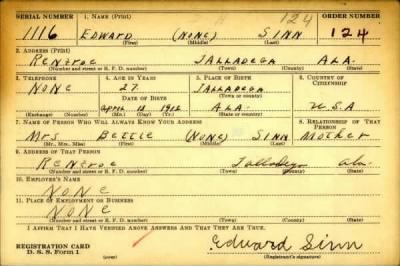 SERIAL NUMBER 1. NAME (Print) 124 ORDER NUMBER
1116 EDWARD (NONE) SINN 124
(First) (Middle) (Last)
2. ADDRESS (Print)
RENFROE TALLADEGA ALA.
(Number and street or R. F. D. number) (Town) (County) (State)
3. TELEPHONE 4. AGE IN YEARS 5. PLACE OF BIRTH 6. COUNTRY OF CITIZENSHIP
NONE 27 TALLADEGA
DATE OF BIRTH (Town or county)
APRIL 13 1913 ALA- U.S.A
(Exchange) (Number) (Mo.) (Day) (Yr.) (State or country)
7. NAME OF PERSON WHO WILL ALWAYS KNOW YOUR ADDRESS 8. RELATIONSHIP OF THAT PERSON
MRS BETTIE (NONE) SINN MOTHER
(Mr., Mrs., Miss) (First) (Middle) (Last)
9. ADDRESS OF THAT PERSON
RENFROE Talladega ala.
(Number and street or R. F. D. number) (Town) (County) (State)
10. EMPLOYER'S NAME
NONE
11. PLACE OF EMPLOYMENT OR BUSINESS
NONE
(Number and street or R. F. D. number) (Town) (County) (State)
I AFFIRM THAT I HAVE VERIFIED ABOVE ANSWERS AND THAT THEY ARE TRUE.
REGISTRATION CARD Edward Sinn
D. S. S. Form 1 (Registrant's signature)